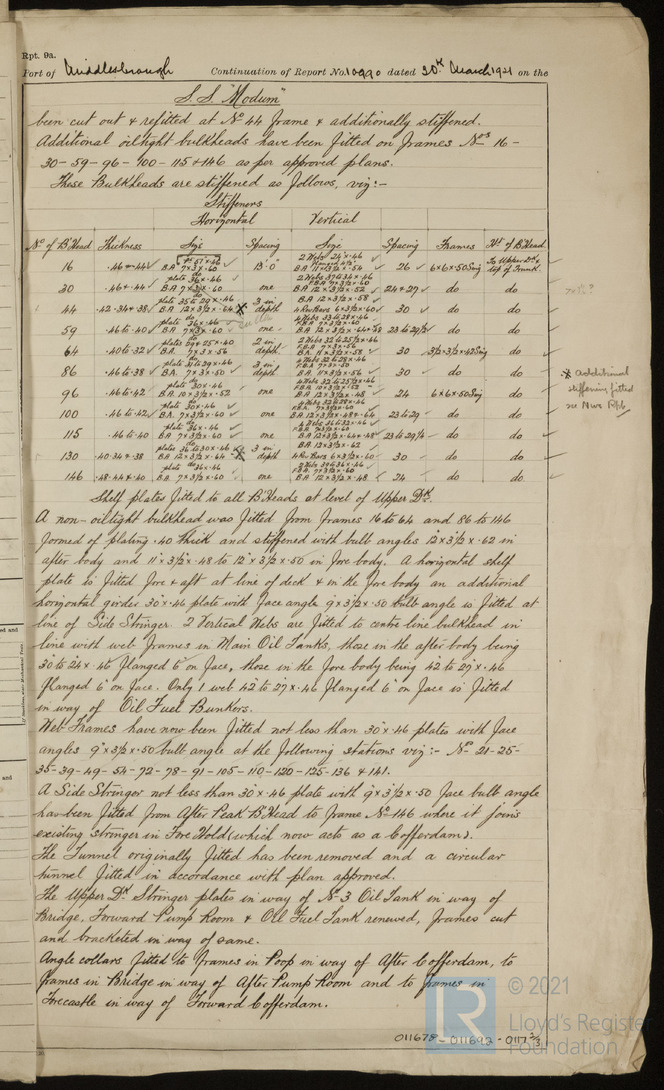 Rpt. 9a.
Port of Middlesbrough Continuation of Report No. 10990 dated 30th March 1921 on the
S.S. "Modum"
been cut out & refitted at No 44 frame & additionally stiffened.
Additional oiltight bulkheads have been fitted on frames Nos 16 -
30 - 59 - 96 - 100 - 115 & 146 as per approved plans.
These Bulkheads are stiffened as follows, viz:-
Stiffeners
Horizontal Vertical
No of B'Head Thickness Size Spacing Size Spacing Frames Ht of B'Head
16 .46 - .44 B.A. 7 x 3 x .60 13' 0" B.A. 11 x 3 1/2 x .54 26 6 x 6 x .50 Sing To Upper Dk & top of Tunnel
30 .46 - .44 plate 36 x .46 B.A. 7 x 3 x .60 one B.A. 12 x 3 1/2 x .52 24 & 27 do do
44 .42 .34 & .38 plate 35 to 29 x .46 B.A. 12 x 3 1/2 x .64 3 in depth 4 Row Bars 6 x 3 1/2 x .60 30 do do
59 .46 to .40 plate 36 x .46 B.A. 7 x 3 x .60 one B.A. 12 x 3 1/2 x .64 & .58 23 to 29 1/2 do do
64 .40 to .32 B.A. 7 x 3 x .56 2 in depth B.A. 11 x 3 1/2 x .58 30 3 1/2 x 3 1/2 x .42 Sing do
86 .46 to .38 B.A. 7 x 3 x .50 3 in depth B.A. 11 x 3 1/2 x .56 30 do do
96 .46 to .42 plate 30 x .46 B.A. 10 x 3 1/2 x .52 one B.A. 12 x 3 1/2 x .48 24 6 x 6 x .50 Sing do
100 .46 to .42 plate 30 x .46 B.A. 7 x 3 1/2 x .60 one B.A. 12 x 3 1/2 x .48 & .64 23 to 29 do do
115 .46 to .40 plate 36 x .46 B.A. 7 x 3 x .60 one B.A. 12 x 3 1/2 x .64 & .48 23 to 29 1/2 do do
130 .40 .34 & .38 plates 36 to 30 x .46 B.A. 12 x 3 1/2 x .64 3 in depth 4 Row Bars 6 x 3 1/2 x .60 30 do do
146 .48 .44 & .40 plate 36 x .46 B.A. 7 x 3 1/2 x .60 one B.A. 12 x 3 1/2 x .48 24 do do
* Additional
stiffening fitted
see Nwc Rpt
Shelf plates fitted to all B'Heads at level of Upper Dk.
A non-oiltight bulkhead was fitted from frames 16 to 64 and 86 to 146
formed of plating .40 thick and stiffened with bulb angles 12" x 3 1/2 x .62 in
after body and 11" x 3 1/2 x .48 to 12" x 3 1/2 x .50 in fore body. A horizontal shelf
plate is fitted fore & aft at line of deck & in the fore body an additional
horizontal girder 30" x .46 plate with face angle 9" x 3 1/2 x .50 bulb angle is fitted at
line of Side Stringer. 2 Vertical Webs are fitted to centre line bulkhead in
line with web frames in Main Oil Tanks, those in the after body being
30 to 24 x .46 flanged 6" on face, those in the fore body being 42 to 27 x .46
flanged 6" on face. Only 1 web 42 to 27 x .46 flanged 6" on face is fitted
in way of Oil Fuel Bunkers.
Web Frames have now been fitted not less than 30" x .46 plates with face
angles 9" x 3 1/2 x .50 bulb angle at the following stations viz:- No 21 - 25 -
35 - 39 - 49 - 54 - 72 - 78 - 91 - 105 - 110 - 120 - 125 - 136 & 141.
A Side Stringer not less than 30" x .46 plate with 9" x 3 1/2 x .50 face bulb angle
has been fitted from After Peak B'Head to frame No 146 where it joins
existing stringer in Fore Hold (which now acts as a Cofferdam).
The Tunnel originally fitted has been removed and a circular
tunnel fitted in accordance with plan approved.
The Upper Dk Stringer plates in way of No 3 Oil Tank in way of
Bridge, Forward Pump Room & Oil Fuel Tank renewed, frames cut
and bracketed in way of same.
Angle collars fitted to frames in Poop in way of After Cofferdam, to
frames in Bridge in way of After Pump Room and to frames in
Forecastle in way of Forward Cofferdam.
© 2021
Lloyd's Register
Foundation
011678 - 011692 - 0117 2/3